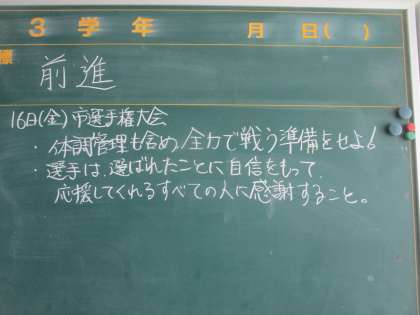 3学年 月 日( )
標
前進
16日(金)市選手権大会
・体調管理も含め、全力で戦う準備をせよ!
・選手は、選ばれたことに自信をもって、
応援してくれるすべての人に感謝すること。